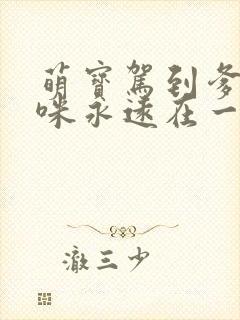 萌寳駕到爹
咪永遠在一
澈三少